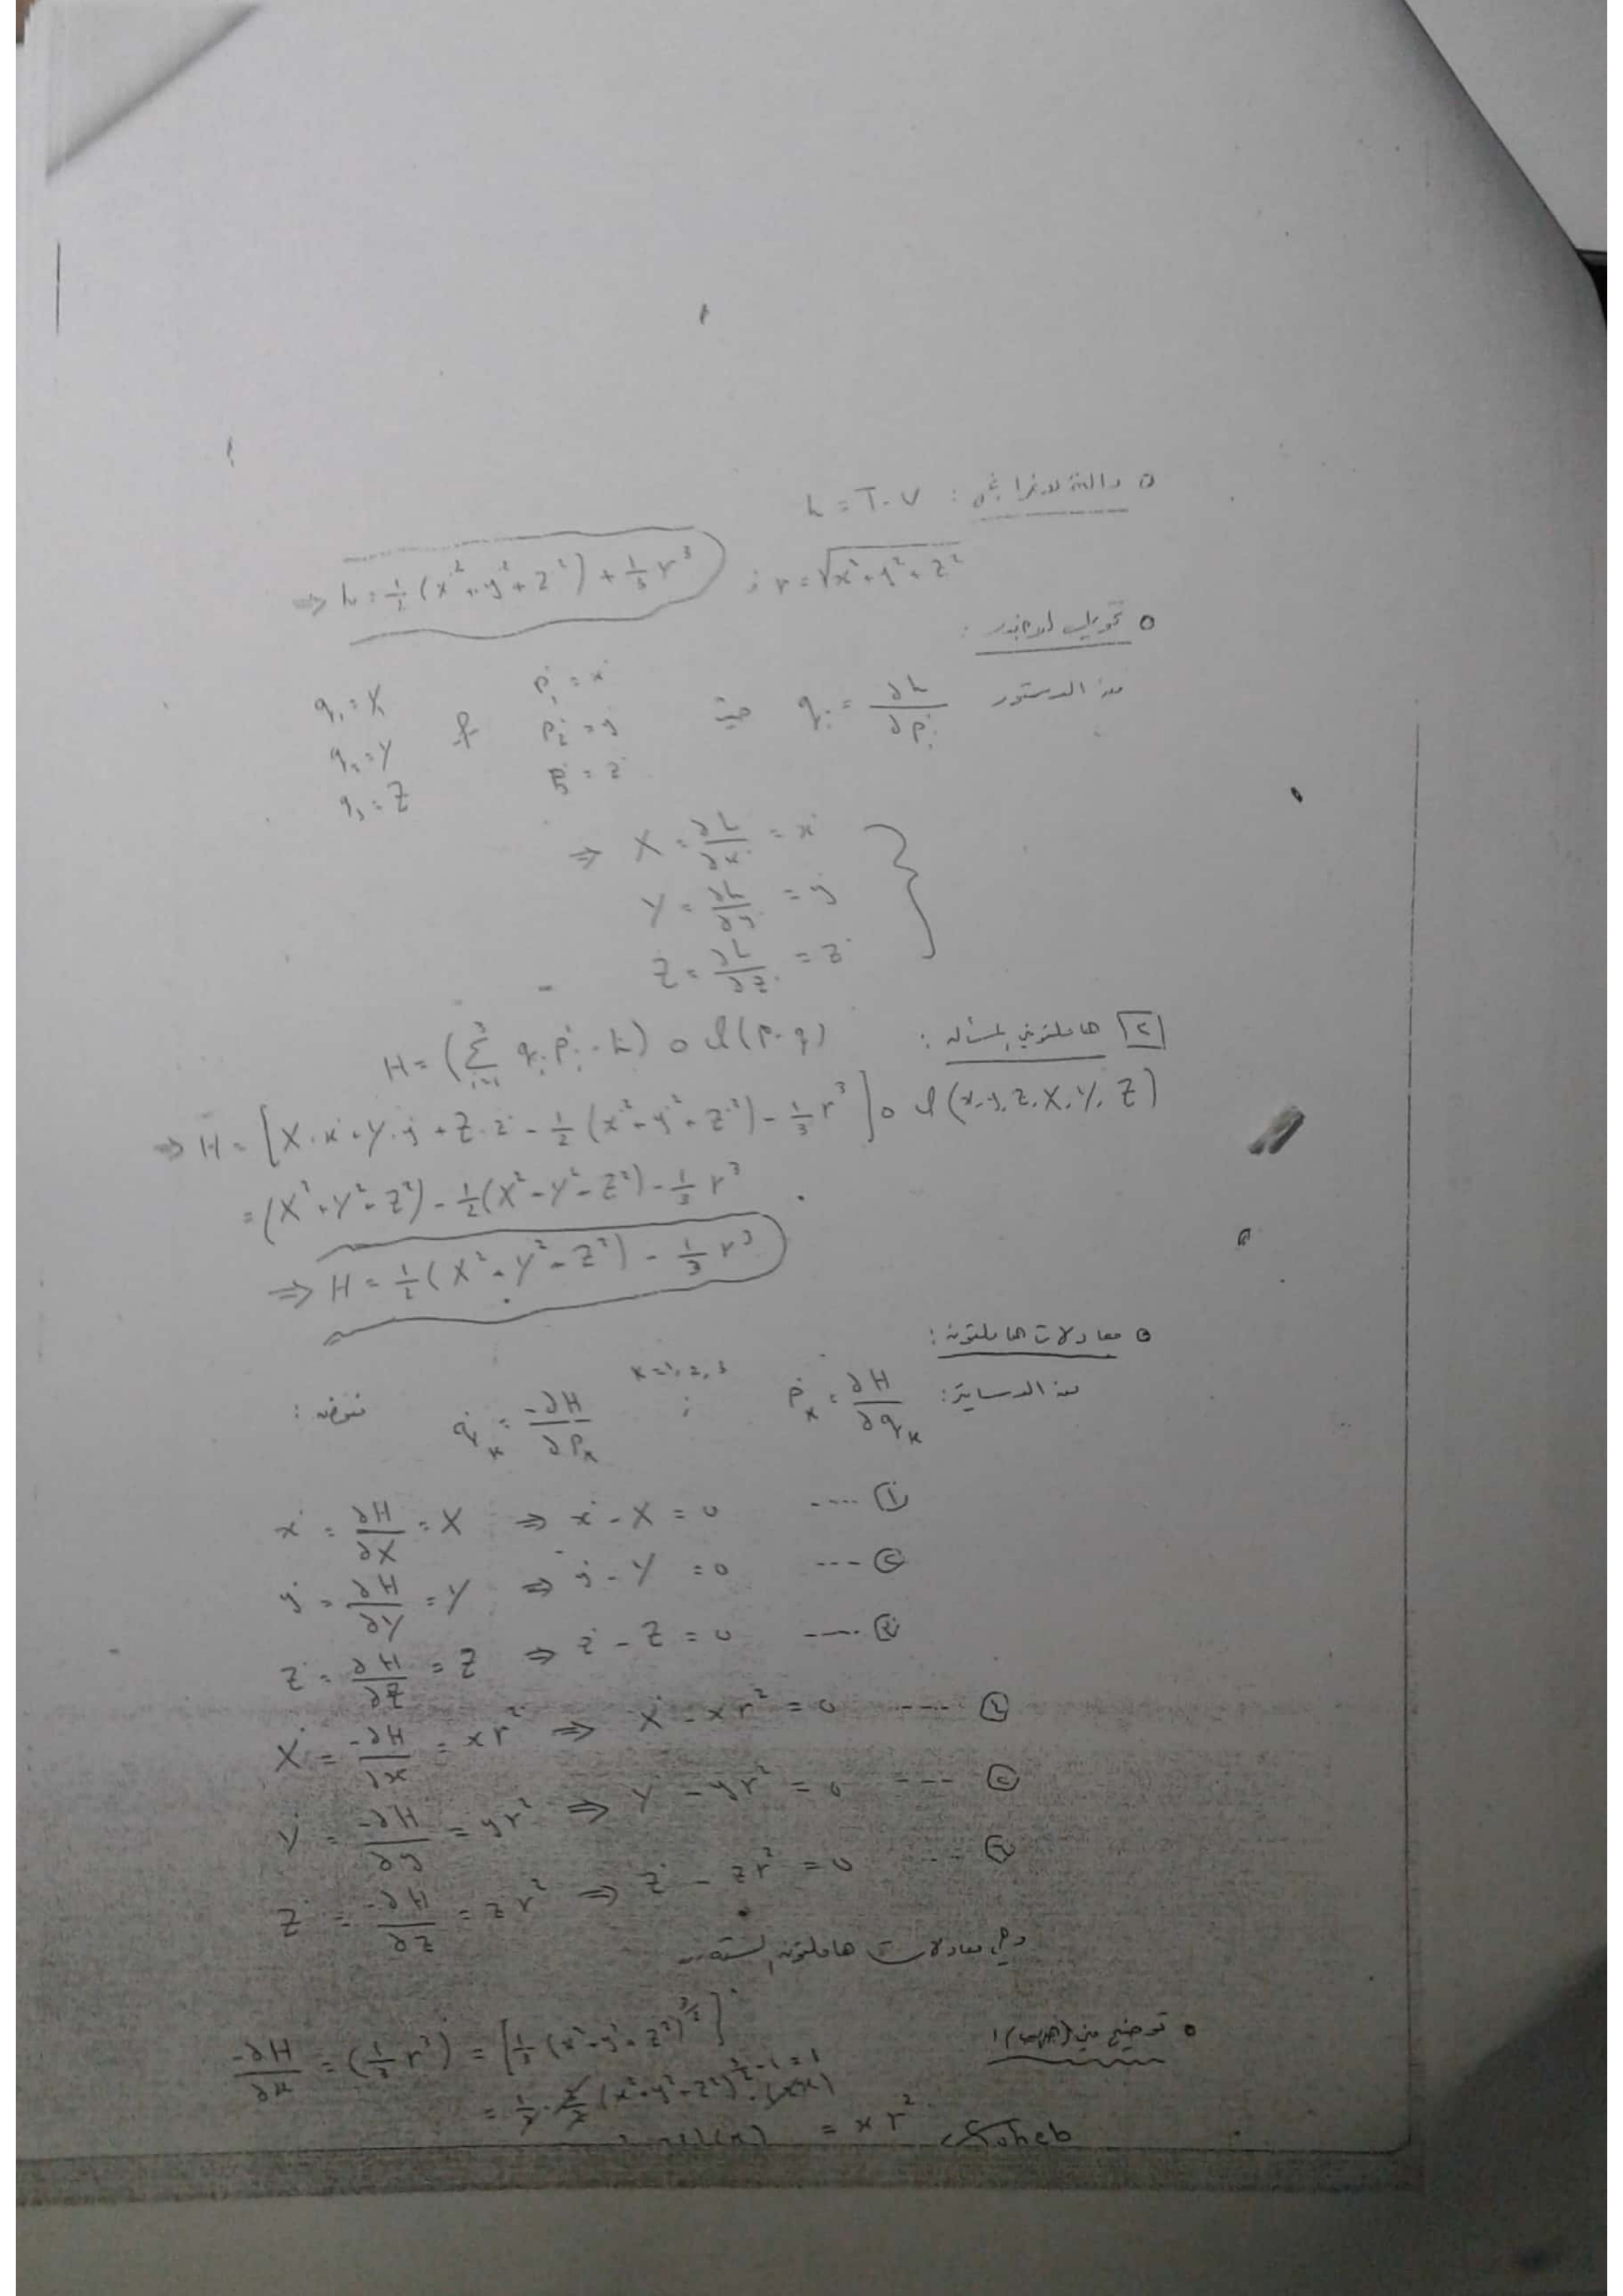 ○ دالة لاغرانج : L = T - V
⇒ L = ½ (ẋ² + ẏ² + ż²) + ⅓ r³ ; r = √x² + y² + z²
○ تحويل لوجاندر :
من الدستور qᵢ = ∂L/∂ṗᵢ حيث
ṗ₁ = ẋ & q₁ = X
ṗ₂ = ẏ q₂ = Y
ṗ₃ = ż q₃ = Z
⇒ X = ∂L/∂ẋ = ẋ
Y = ∂L/∂ẏ = ẏ
Z = ∂L/∂ż = ż
[٢] هاملتوني المسألة :
H = (∑ qᵢ ṗᵢ - L) ∘ (p, q)
⇒ H = [X·ẋ + Y·ẏ + Z·ż - ½ (ẋ² + ẏ² + ż²) - ⅓ r³] ∘ (x, y, z, X, Y, Z)
= (X² + Y² + Z²) - ½ (X² - Y² - Z²) - ⅓ r³
⇒ H = ½ (X² + Y² + Z²) - ⅓ r³
○ معادلات هاملتون :
من الدساتير : ṗₖ = ∂H/∂qₖ ; q̇ₖ = -∂H/∂pₖ k = 1, 2, 3 نعوض :
ẋ = ∂H/∂X = X ⇒ ẋ - X = 0 ---- ①
ẏ = ∂H/∂Y = Y ⇒ ẏ - Y = 0 --- ②
ż = ∂H/∂Z = Z ⇒ ż - Z = 0 ---- ③
Ẋ = -∂H/∂x = x r² ⇒ Ẋ - x r² = 0 ---- ④
Ẏ = -∂H/∂y = y r² ⇒ Ẏ - y r² = 0 --- ⑤
Ż = -∂H/∂z = z r² ⇒ Ż - z r² = 0 --- ⑥
وهي معادلات هاملتون الستة
○ توضيح
-∂H/∂x = (⅓ r³) = [⅓ (x² + y² + z²)^{3/2}]
= ⅓ · 3/2 (x² + y² + z²)^{3/2 - 1} · (2x)
= x r²